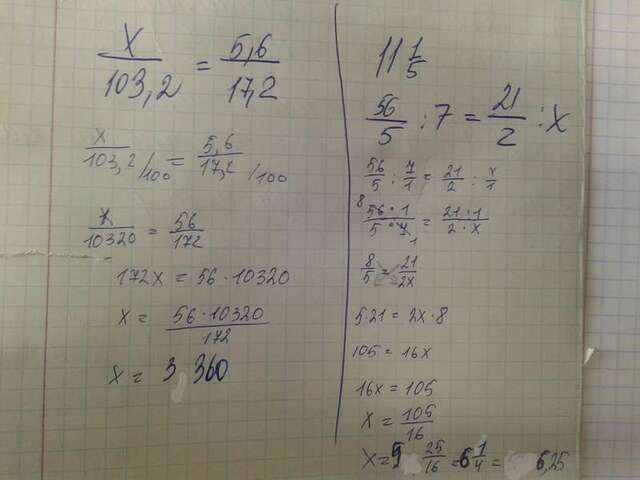 x/103,2 = 5,6/17,2
x/103,2 /100 = 5,6/17,2 /100
x/10320 = 56/172
172x = 56·10320
x = 56·10320/172
x = 3 360
11 1/5
56/5 : 7 = 21/2 : x
56/5 : 7/1 = 21/2 : x/1
56·1/5·7 = 21·1/2·x
8/5 = 21/2x
5 21 = 2x·8
105 = 16x
16x = 105
x = 105/16
x = 5 25/16 = 6 1/4 = 6,25